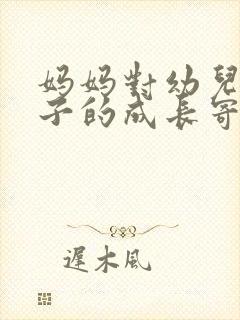 妈妈對幼兒
子的成長寄
遲木風